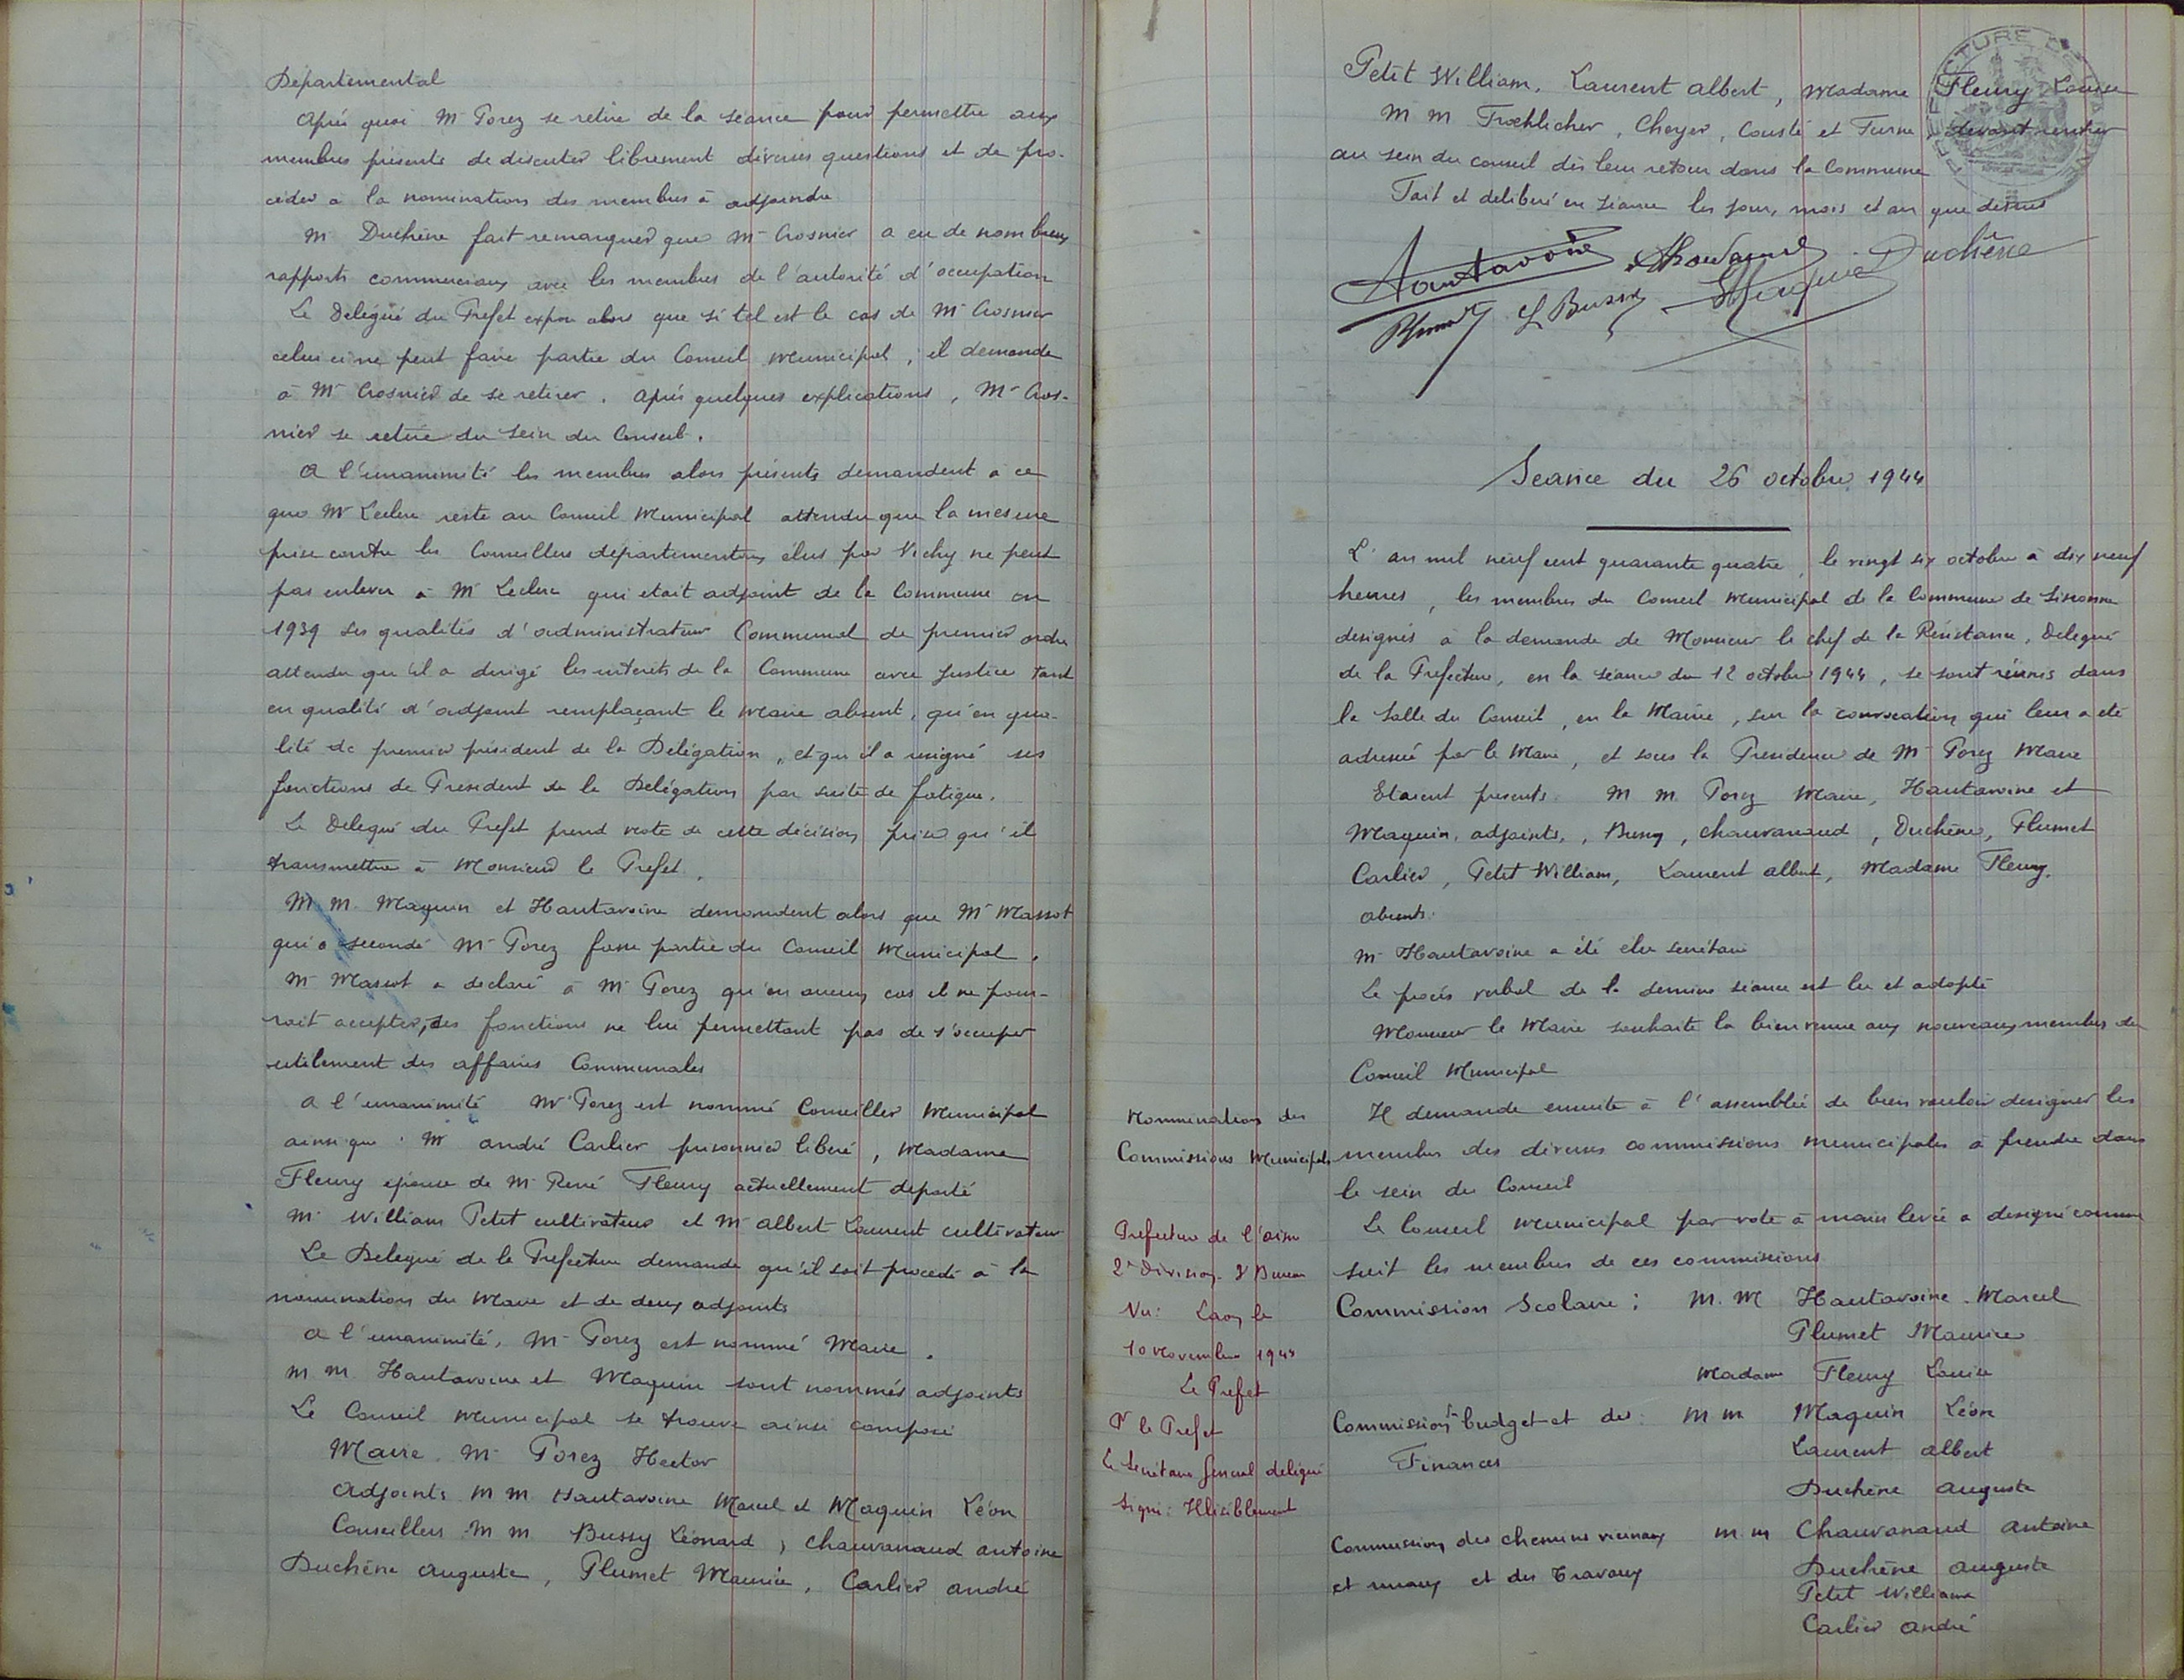 Départemental
Après quoi Mr Porez se retire de la séance pour permettre aux
membres présents de discuter librement diverses questions et de pro-
céder à la nomination des membres à adjoindre
Mr Duchêne fait remarquer que Mr Crosnier a eu de nombreux
rapports commerciaux avec les membres de l'autorité d'occupation
Le Délégué du Préfet expose alors que si tel est le cas de Mr Crosnier
celui ci ne peut faire partie du Conseil Municipal, il demande
à Mr Crosnier de se retirer. Après quelques explications, Mr Cros-
nier se retire du sein du Conseil.
A l'unanimité les membres alors présents demandent à ce
que Mr Leclerc reste au Conseil Municipal attendu que la mesure
prise contre les Conseillers départementaux élus par Vichy ne peut
pas enlever à Mr Leclerc qui était adjoint de la Commune en
1939 ses qualités d'administrateur Communal de premier ordre
attendu qu'il a dirigé les intérêts de la Commune avec justice tant
en qualité d'adjoint remplaçant le Maire absent, qu'en qua-
lité de premier président de la Délégation, et qu'il a résigné ses
fonctions de Président de la Délégation par suite de fatigue.
Le Délégué du Préfet prend note de cette décision prise qu'il
transmettra à Monsieur le Préfet.
M.M. Maquin et Hautavoine demandent alors que Mr Massot
qui a secondé Mr Porez fasse partie du Conseil Municipal.
Mr Massot a déclaré à Mr Porez qu'en aucun cas il ne pour-
rait accepter, ses fonctions ne lui permettant pas de s'occuper
utilement des affaires Communales
A l'unanimité Mr Porez est nommé Conseiller Municipal
ainsi que : Mr André Carlier prisonnier libéré, Madame
Fleury épouse de Mr René Fleury actuellement déporté
Mr William Petit cultivateur et Mr Albert Laurent cultivateur
Le Délégué de la Préfecture demande qu'il soit procédé à la
nomination du Maire et de deux adjoints
A l'unanimité, Mr Porez est nommé Maire.
M M. Hautavoine et Maquin sont nommés adjoints
Le Conseil Municipal se trouve ainsi composé
Maire Mr Porez Hector
Adjoints M M. Hautavoine Marcel et Maquin Léon
Conseillers M M Bussy Léonard, Chauvanaud Antoine
Duchêne Auguste, Plumet Maurice, Carlier André
Petit William, Laurent Albert, Madame Fleury Louise
M M Froehlicher, Choyer, Cousté et Turne devant rentrer
au sein du conseil dès leur retour dans la Commune
Fait et délibéré en séance les jour, mois et an que dessus
Hautavoine Chauvanaud Duchêne
Plumet L Bussy Maquin
Séance du 26 octobre 1944
L'an mil neuf cent quarante quatre, le vingt six octobre à dix neuf
heures, les membres du Conseil Municipal de la Commune de Sissonne
désignés à la demande de Monsieur le chef de la Résistance, Délégué
de la Préfecture, en la séance du 12 octobre 1944, se sont réunis dans
la Salle du Conseil, en la Mairie, sur la convocation qui leur a été
adressée par le Maire, et sous la Présidence de Mr Porez Maire
Etaient présents : M M Porez Maire, Hautavoine et
Maquin, adjoints, Bussy, Chauvanaud, Duchêne, Plumet
Carlier, Petit William, Laurent Albert, Madame Fleury.
Absents.
Mr Hautavoine a été élu secrétaire
Le procès verbal de la dernière séance est lu et adopté
Monsieur le Maire souhaite la bienvenue aux nouveaux membres du
Conseil Municipal
Nomination des
Commissions Municipales
Il demande ensuite à l'assemblée de bien vouloir désigner les
membres des diverses commissions municipales à prendre dans
le sein du Conseil
Le Conseil Municipal par vote à main levée a désigné comme
suit les membres de ces commissions
Préfecture de l'Aisne
2e Division. 2e Bureau
Vu: Laon le
10 Novembre 1944
Le Préfet
Pr le Préfet
Le Secrétaire Général délégué
Signé: Illisiblement
Commission Scolaire : M.M Hautavoine Marcel
Plumet Maurice
Madame Fleury Louise
Commission budget et des M m Maquin Léon
Finances Laurent Albert
Duchêne Auguste
Commission des chemins vicinaux M.m Chauvanaud Antoine
et ruraux et des Travaux Duchêne Auguste
Petit William
Carlier André